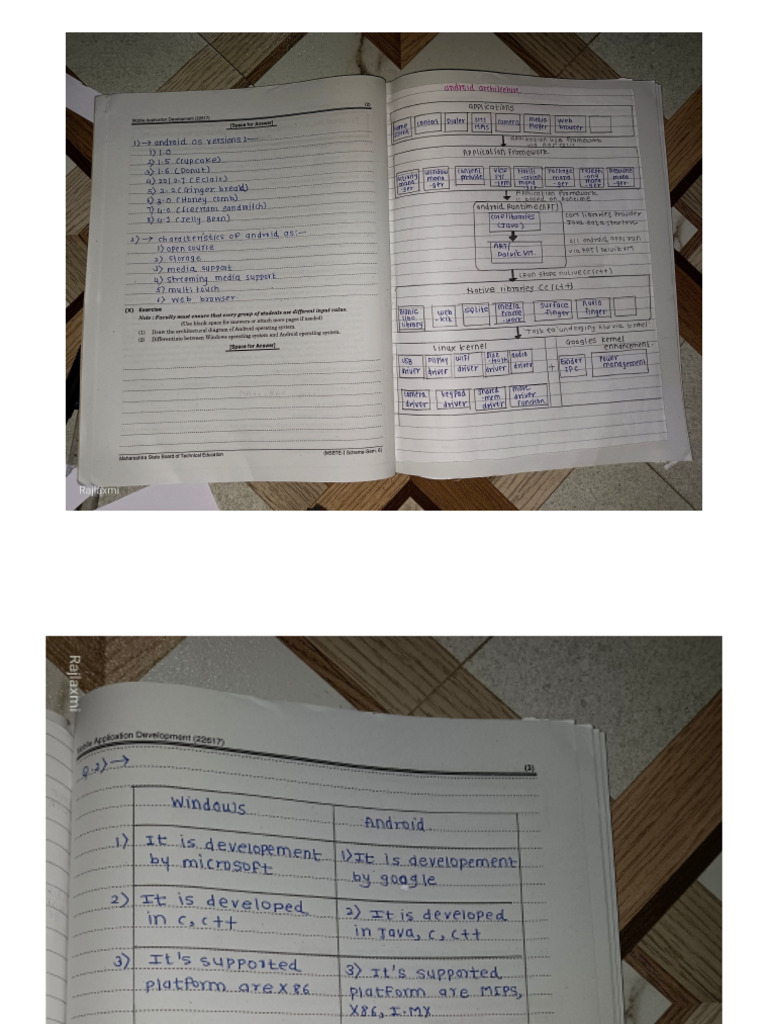 Mobile Application Development (22617)
(2)
[Space for Answer]
1)→ android os versions :-
1) 1.0
2) 1.5 (Cupcake)
3) 1.6 (Donut)
4) 2.0/2.1 (Eclair)
5) 2.2 (Ginger bread)
6) 3.0 (Honey comb)
7) 4.0 (Icecream Sandwitch)
8) 4.1 (Jelly Bean)
2)→ characteristics of android os:-
1) open source
2) storage
3) media support
4) streaming media support
5) multi touch
6) web browser
(X) Exercise
Note : Faculty must ensure that every group of students use different input value.
(Use blank space for answers or attach more pages if needed)
(1) Draw the architectural diagram of Android operating system.
(2) Differentiate between Windows operating system and Android operating system.
[Space for Answer]
Maharashtra State Board of Technical Education
(MSBTE-I Scheme-Sem. 6)
Rajlaxmi
android architecture
applications
contact
Dialer
camera
web
browser
Application Framework
window
mana
-ger
content
provider
package
mana
-ger
android Runtime (ART)
core libraries
(Java)
ART/
Dalvik VM
Native libraries CC (C++)
library
web
-kit
sqlite
media
frame
-work
surface
finger
Audio
finger
Linux kernel
Googles kernel
enhancement
USB
driver
Display
driver
wifi
driver
audio
driver
+
Binder
IPC
Power
management
camera
driver
keypad
driver
shared
mem
driver
Rajlaxmi
Mobile Application Development (22617)
(3)
Q.2)→
Windows
Android
1) It is developement
by microsoft
1) It is developement
by google
2) It is developed
in C, C++
2) It is developed
in Java, C, C++
3) It's supported
platform are X86
3) It's supported
platform are MIPS,
X86, I.MX